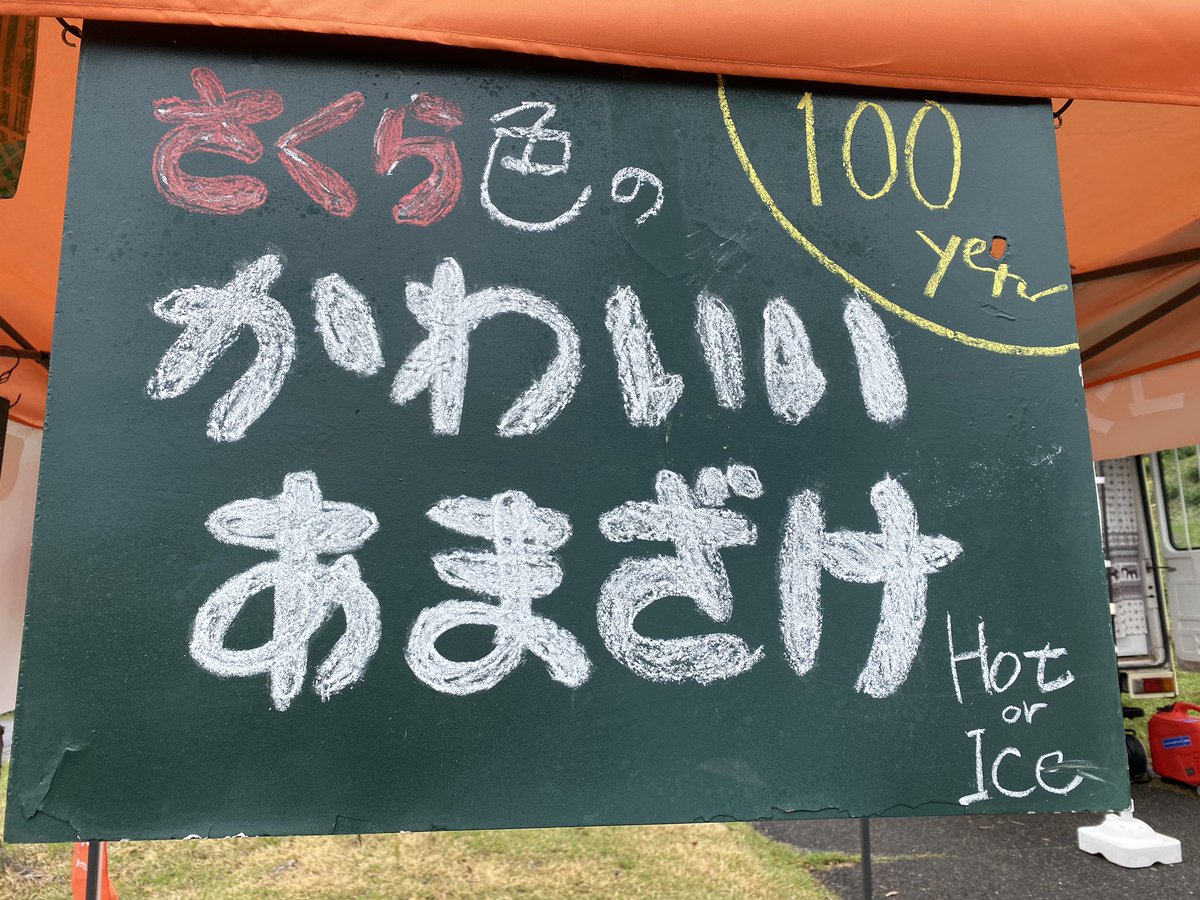 さくら色の
100
yen
かわいい
あまざけ
Hot
or
Ice